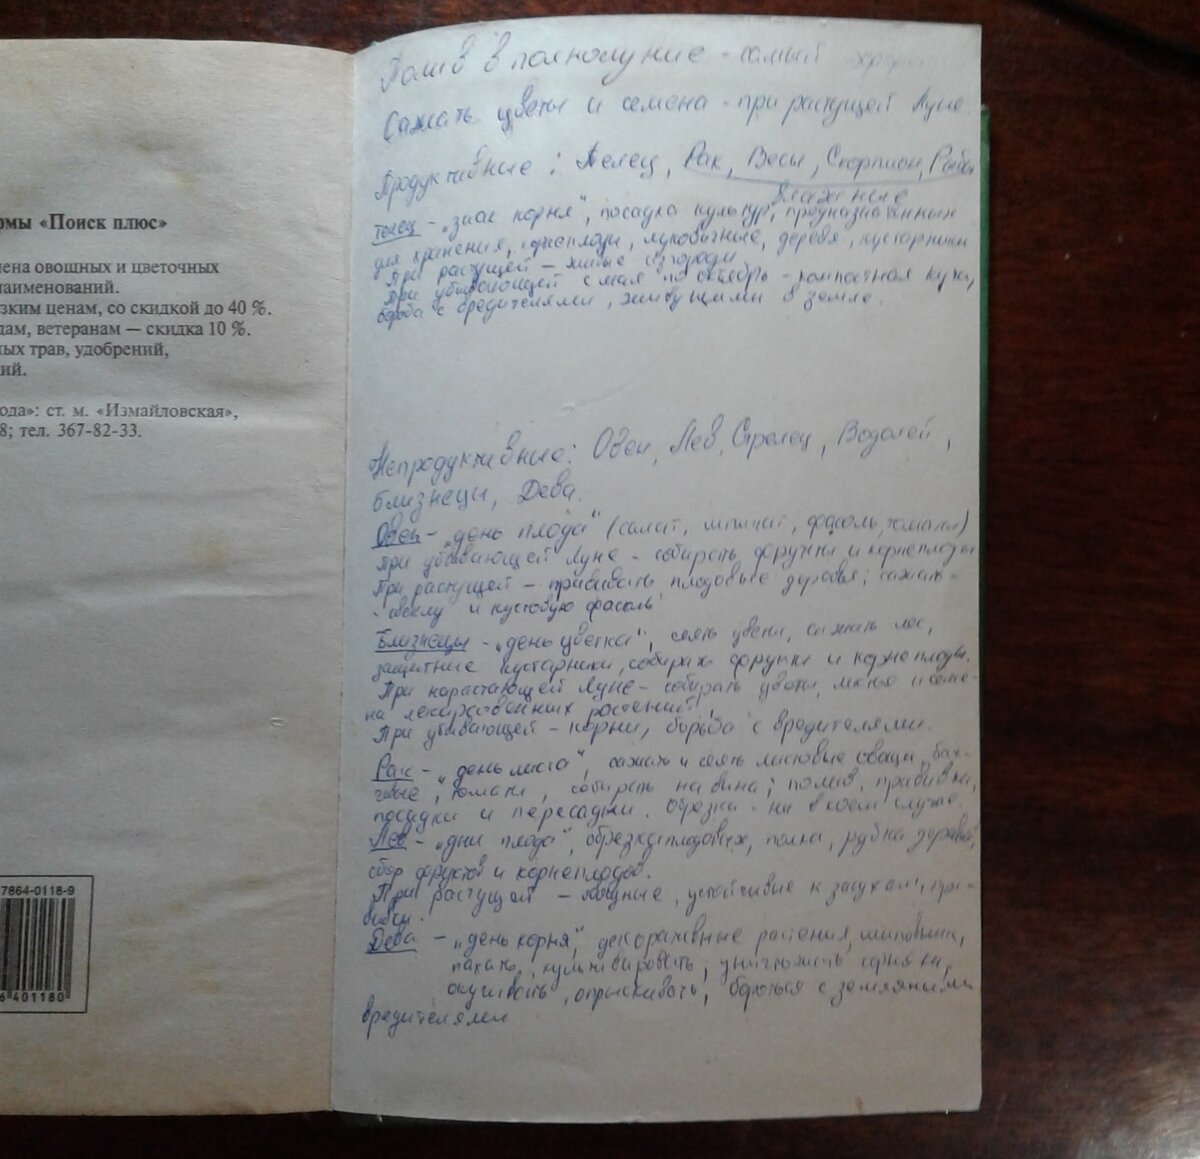 рмы «Поиск плюс»
мена овощных и цветочных
наименований.
зким ценам, со скидкой до 40 %.
дам, ветеранам — скидка 10 %.
ных трав, удобрений,
ий.
ода»: ст. м. «Измайловская»,
8; тел. 367-82-33.
7864-0118-9
401180
Полив в полнолуние - самый
Сажать цветы и семена - при растущей Луне.
Продуктивные: Телец, Рак, Весы, Скорпион, Рыбы
влажные
Телец - „знак корня", посадка культур, предназначенных
для хранения, корнеплоды, луковичные, деревья, кустарники
При растущей - живые изгороди
При убывающей с мая по октябрь - компостная куча,
борьба с вредителями, живущими в земле.
Непродуктивные: Овен, Лев, Стрелец, Водолей,
Близнецы, Дева.
Овен - „день плода" (салат, шпинат, фасоль, томаты)
При убывающей Луне - собирать фрукты и корнеплоды
При растущей - прививать плодовые деревья; сажать -
- свеклу и кустовую фасоль
Близнецы - „день цветка", сеять цветы, сажать лес,
защитные кустарники, собирать фрукты и корнеплоды.
При нарастающей Луне - собирать цветы, листья и семе-
на лекарственных растений,
При убывающей - корни, борьба с вредителями.
Рак - „день листа", сажать и сеять листовые овощи, бах-
чевые, томаты, собирать на вина; полив, прививки,
посадки и пересадки. Обрезка - ни в коем случае.
Лев - „дни плода", обрезка плодовых, полка, рубка деревьев,
сбор фруктов и корнеплодов.
При растущей - устойчивые к засухам, при-
вивки.
Дева - „день корня", декоративные растения, шиповник,
пахать, культивировать, уничтожать сорняки,
окучивать, опрыскивать, бороться с земляными
вредителями